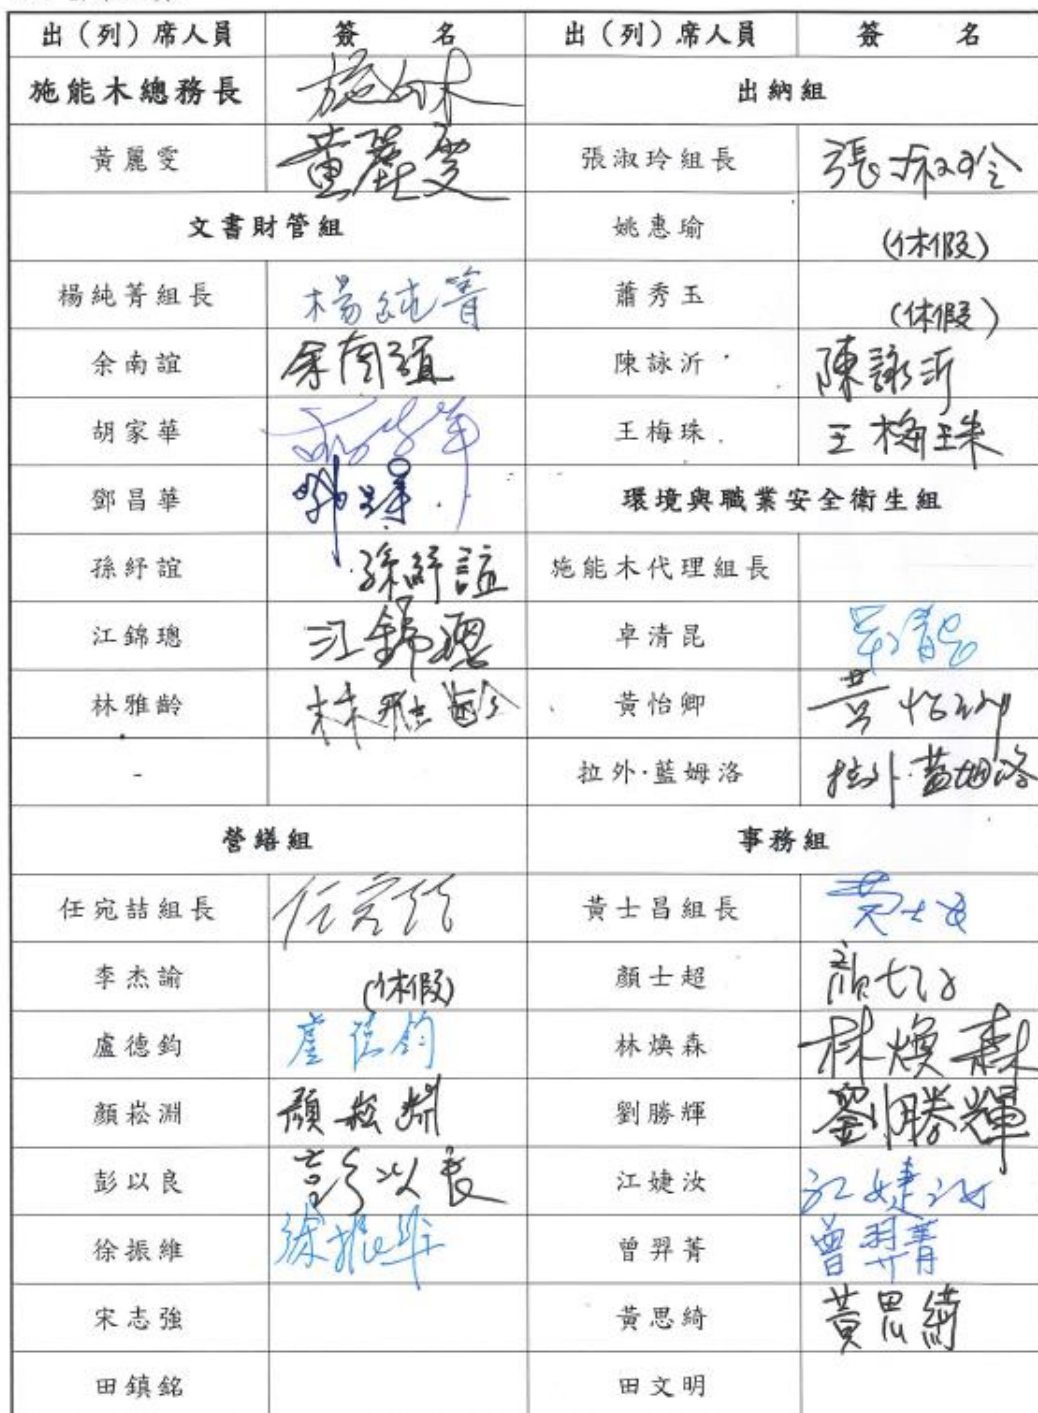 出（列）席人員 簽名 出（列）席人員 簽名
施能木總務長 施能木 出納組
黃麗雯 黃麗雯 張淑玲組長 張淑玲
文書財管組 姚惠瑜 (休假)
楊純菁組長 楊純菁 蕭秀玉 (休假)
余南誼 余南誼 陳詠沂 陳詠沂
胡家華 胡家華 王梅珠 王梅珠
鄧昌華 環境與職業安全衛生組
孫紓誼 孫紓誼 施能木代理組長
江錦璁 江錦璁 卓清昆
林雅齡 林雅齡 黃怡卿 黃怡卿
- 拉外·藍姆洛 拉外·藍姆洛
營繕組 事務組
任宛喆組長 任宛喆 黃士昌組長 黃士昌
李杰諭 (休假) 顏士超 顏士超
盧德鈞 盧德鈞 林煥森 林煥森
顏崧淵 顏崧淵 劉勝輝 劉勝輝
彭以良 彭以良 江婕汝 江婕汝
徐振維 徐振維 曾羿菁 曾羿菁
宋志強 黃思綺 黃思綺
田鎮銘 田文明